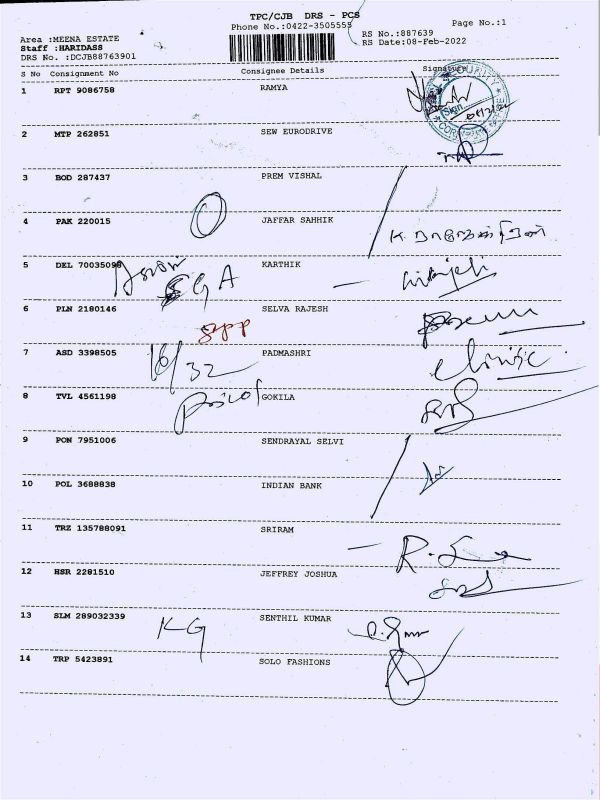 TPC/CJB DRS - PCS
Page No.:1
Phone No.:0422-3505555
RS No.:887639
Area :MEENA ESTATE
RS Date:08-Feb-2022
Staff :HARIDASS
DRS No. :DCJB88763901
S No Consignment No Consignee Details Signature
1 RPT 9086758 RAMYA
2 MTP 262851 SEW EURODRIVE
3 BOD 287437 PREM VISHAL
4 PAK 220015 JAFFAR SAHHIK
5 DEL 70035098 KARTHIK
G A
6 PLN 2180146 SELVA RAJESH
7 ASD 3398505 PADMASHRI
16/32
8 TVL 4561198 GOKILA
9 PON 7951006 SENDRAYAL SELVI
10 POL 3688838 INDIAN BANK
11 TRZ 135788091 SRIRAM
12 HSR 2281510 JEFFREY JOSHUA
13 SLM 289032339 SENTHIL KUMAR
KG
14 TRP 5423891 SOLO FASHIONS